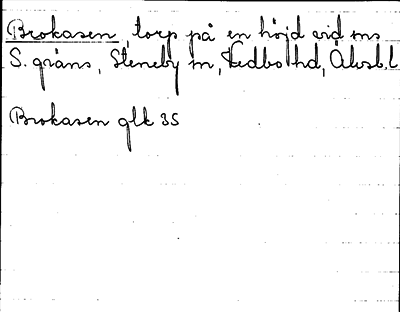 Brokasen, torp på en höjd vid sns
S. gräns, Steneby sn, Vedbo hd, Älvsb. l.
Brokasen glk 35